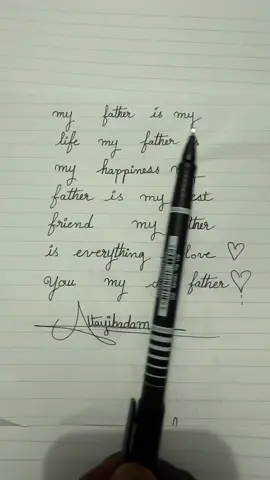 my father is my
life my father
my happiness
father is my
friend my
is everything love ♡
You my father ♡
Altayibadam